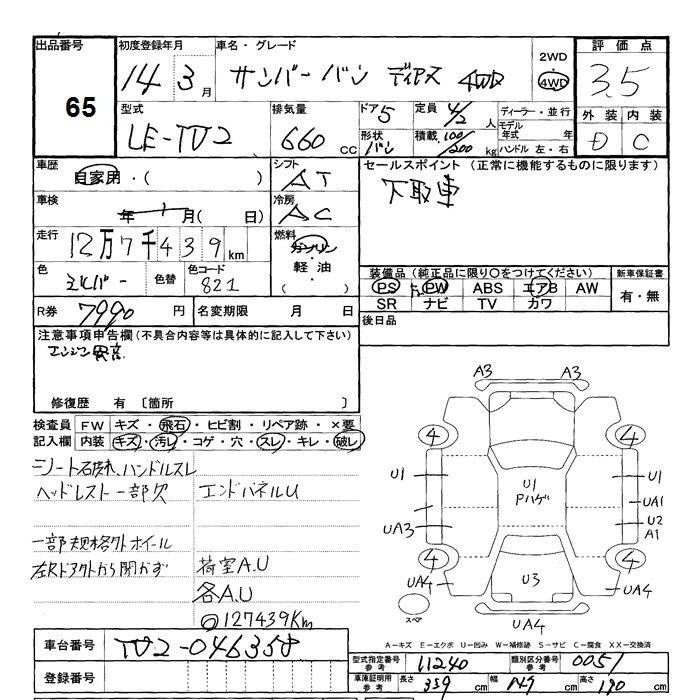 出品番号 初度登録年月 車名・グレード 評価点
65
14 3月 サンバーバン ディアス 4WD
2WD
4WD
3.5
型式 排気量 ドア 定員 人 ディーラー・並行 外装 内装
LE-TV2 660 CC 5 4/2
モデル年式 年
形状 バン 積載 100/200 kg ハンドル 左・右 D C
車歴 シフト セールスポイント (正常に機能するものに限ります)
自家用・( ) AT 下取車
車検 冷房
年 月( 日) AC
走行 燃料
12万7千439km ガソリン
軽油・( )
色 色替 色コード
シルバー 821
装備品 (純正品に限り○をつけてください) 新車保証書
PS PW ABS エアB AW 有・無
SR ナビ TV カワ
R券 7990 円 名変期限 月 日 後日品
注意事項申告欄(不具合内容等は具体的に記入して下さい)
エンジン異音
修復歴 有 〔箇所 〕
検査員 FW キズ・飛石・ヒビ割・リペア跡・×要
記入欄 内装 キズ・汚レ・コゲ・穴・スレ・キレ・破レ
シート破れ、ハンドルスレ
ヘッドレスト一部欠 エンドパネルU
一部規格外ホイール
左Rドア外から開かず 荷室A.U
各A.U
127439Km
A3 A3
4 4
U1 U1 U1
Pハゲ UA1
UA3 U2
A1
4 4
UA4 U3 UA4
スペア UA4
A−キズ E−エクボ U−凹み W−補修跡 S−サビ C−腐食 XX−交換済
車台番号 TV2-046358
登録番号
型式指定番号 参考 11240 類別区分番号 参考 0051
車庫証明用 参考 長さ 339 cm 幅 147 cm 高さ 190 cm